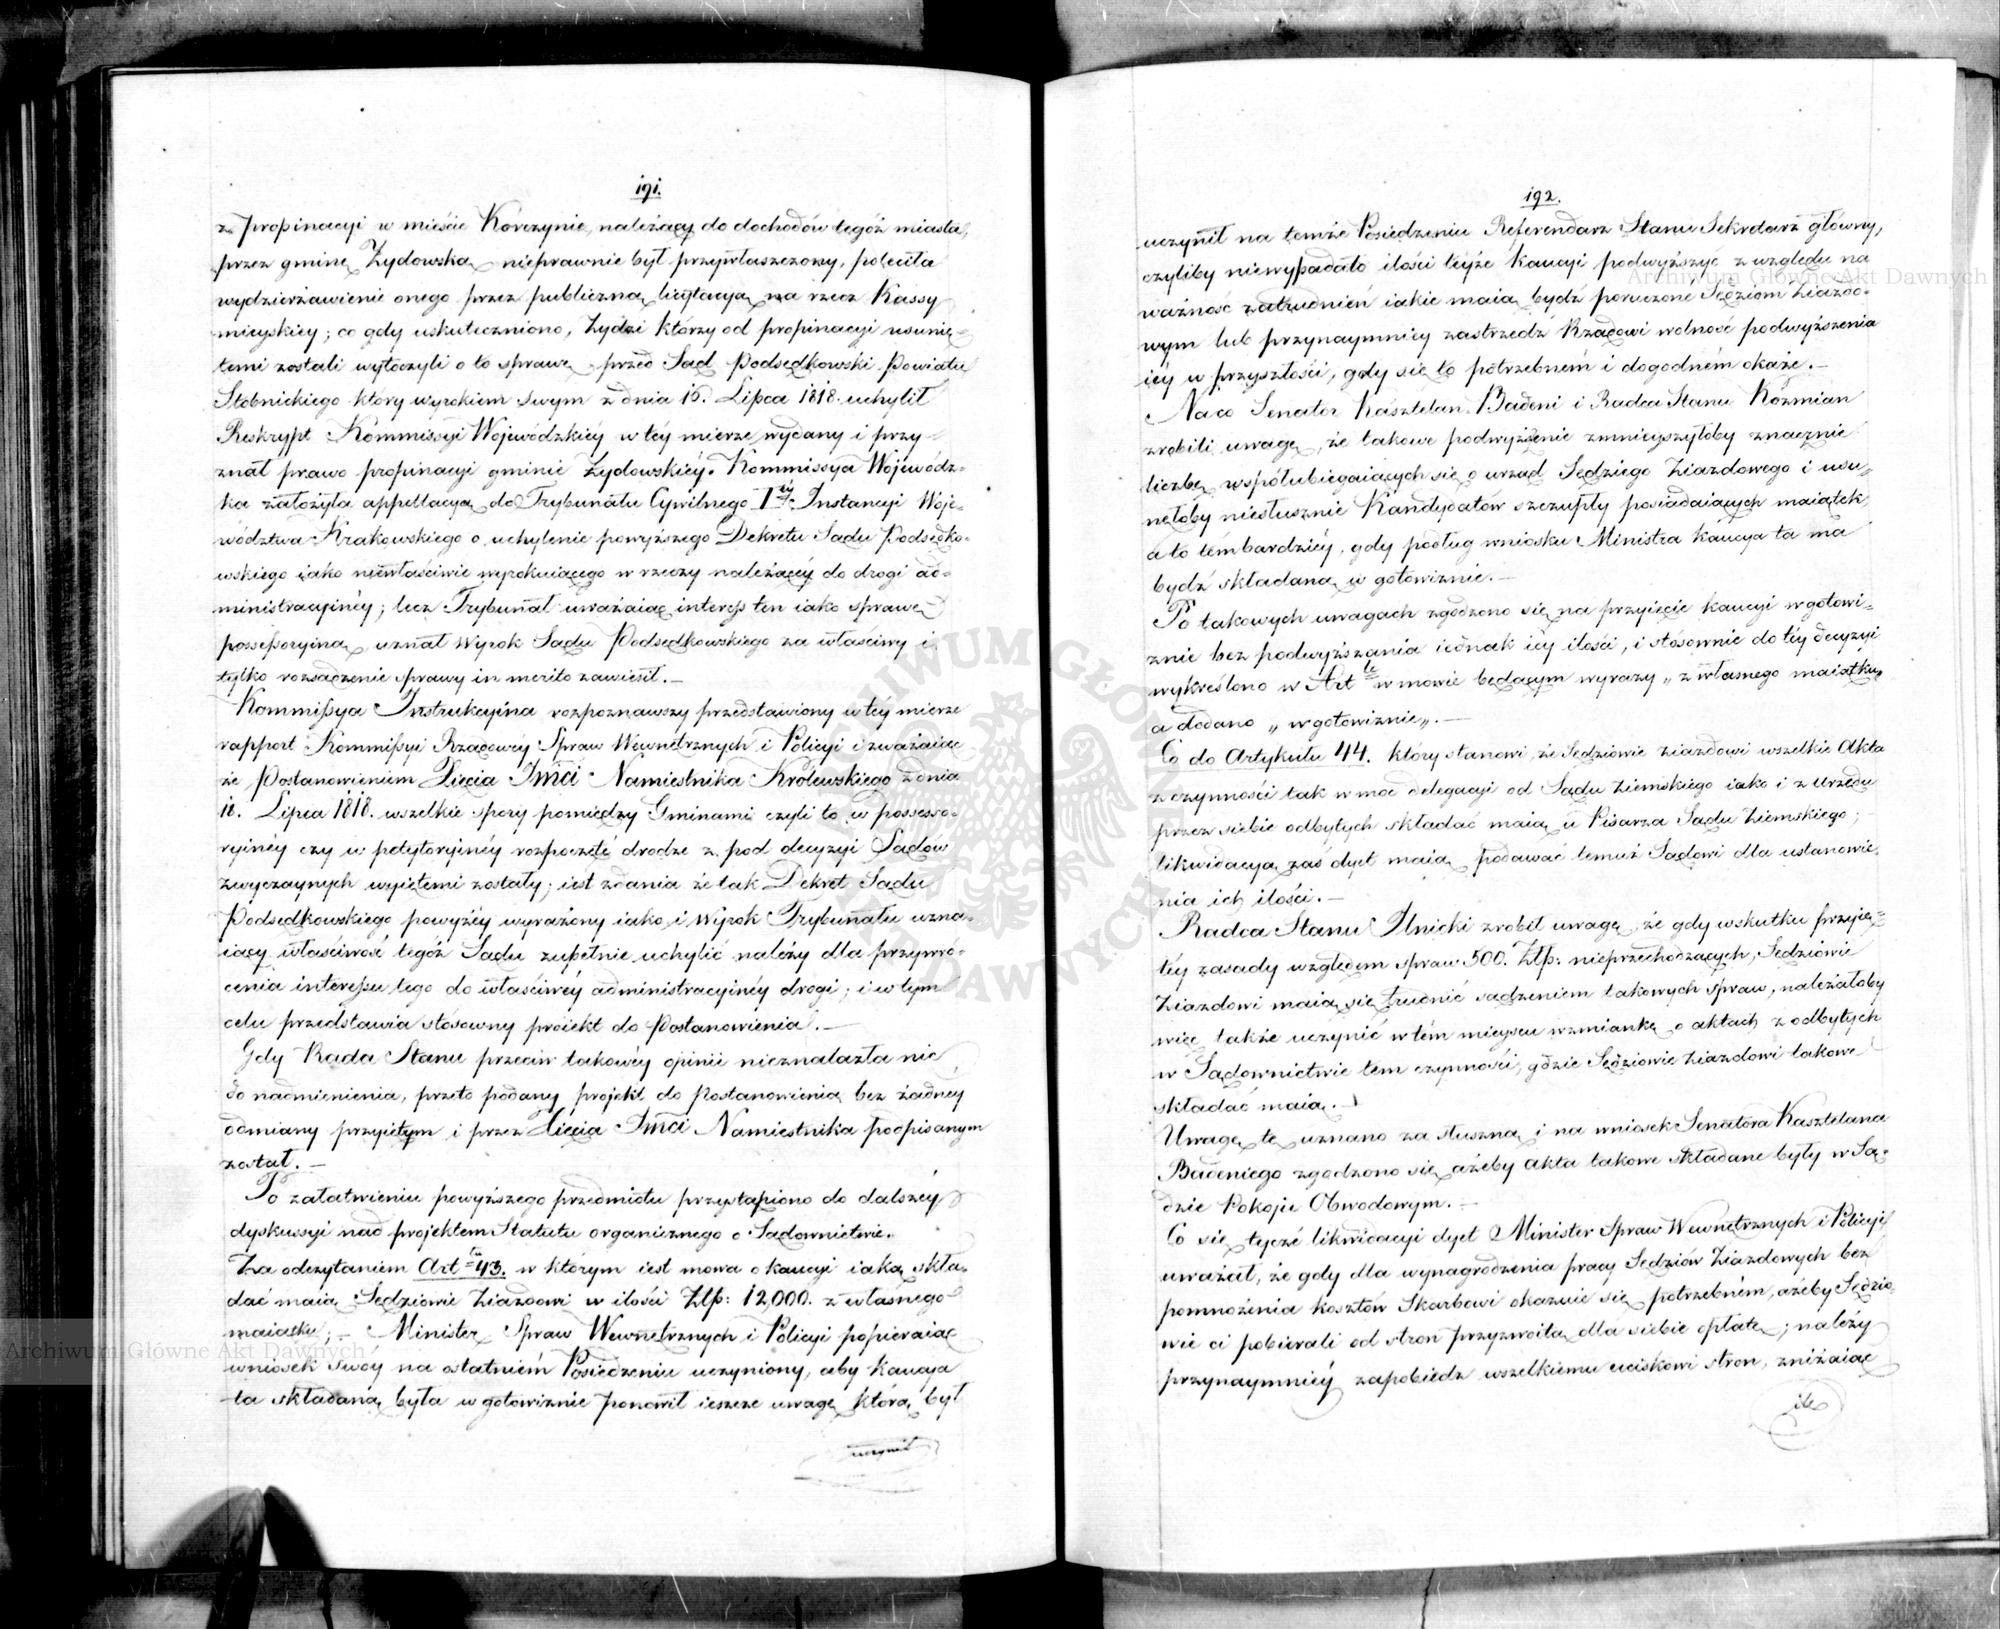 191.
z propinacyi w mieście Kórczynie, należący do dochodów tegóż miasta,
przez gminę Żydowską nieprawnie był przywłaszczony, poleciła
wydzierżawienie onego przez publiczną licytacyą na rzecz Kassy
mieyskiey; co gdy uskuteczniono, Żydzi którzy od propinacyi usunię-
temi zostali wytoczyli o to sprawę przed Sąd Podsędkowski Powiatu
Stobnickiego który wyrokiem swym z dnia 15. Lipca 1818. uchylił
Reskrypt Kommissyi Wojewódzkiéy w téy mierze wydany i przy-
znał prawo propinacyi gminie Żydowskiéy. Kommissya Wojewódz-
ka założyła appellacyą do Trybunału Cywilnego Iéy Instancyi Woje-
wództwa Krakowskiego o uchylenie powyższego Dekretu Sądu Podsędko-
wskiego iako niewłaściwie wyrokuiącego w rzeczy należącéy do drogi ad-
ministracyinéy; lecz Trybunał uważaiąc interess ten iako sprawę
possessoryiną uznał Wyrok Sądu Podsędkowskiego za właściwy i
tylko rozsądzenie sprawy in merito zawiesił.—
Kommissya Instrukcyina rozpoznawszy przedstawiony w téy mierze
rapport Kommissyi Rządowéy Spraw Wewnętrznych i Policyi i zważaiąc
że Postanowieniem Xięcia Jmci Namiestnika Królewskiego z dnia
18. Lipca 1818. wszelkie spory pomiędzy Gminami czyli to w possesso-
ryinéy czy w petytoryinéy rozpoczęte drodze z pod decyzyi Sądów
zwyczaynych wyiętemi zostały; iest zdania że tak Dekret Sądu
Podsędkowskiego powyżéy wyrażony iako i Wyrok Trybunału uzna-
iący właściwość tegóż Sądu zupełnie uchylić należy dla przywró-
cenia interessu tego do właściwéy administracyinéy drogi; i w tym
celu przedstawia stósowny projekt do Postanowienia.—
Gdy Rada Stanu przeciw takowéy opinii nieznalazła nic
do nadmienienia, przeto podany projekt do Postanowienia bez żadnéy
odmiany przyiętym i przez Xięcia Jmci Namiestnika podpisanym
został.—
Po załatwieniu powyższego przedmiotu przystąpiono do dalszéy
dyskussyi nad projektem Statutu organicznego o Sądownictwie.
Za odczytaniem Art=łu 43. w którym iest mowa o kaucyi iaką skła-
dać maią Sędziowie Ziazdowi w ilości Złp: 12,000. z własnego
maiątku;— Minister Spraw Wewnętrznych i Policyi popieraiąc
wniosek swóy na ostatniém Posiedzeniu uczyniony, aby kaucya
ta składaną była w gotowiznie ponowił ieszcze uwagę którą był
uczynił
192.
uczynił na temże Posiedzeniu Referendarz Stanu Sekretarz główny,
czyliby niewypadało ilości teyże kaucyi podwyższyć z względu na
ważność zatrudnień iakie maią bydź poruczone Sędziom Ziazdo-
wym lub przynaymniey zastrzedz Rządowi wolność podwyższenia
iéy w przyszłości, gdy się to potrzebném i dogodném okaże.—
Na co Senator Kasztelan Badeni i Radca Stanu Koźmian
zrobili uwagę, że takowe podwyższenie zmnieyszyłoby znacznie
liczbę współubiegaiących się o urząd Sędziego Ziazdowego i usu-
nęłoby niesłusznie Kandydatów szczupły posiadaiących maiątek,
a to témbardziéy, gdy podług wniosku Ministra kaucya ta ma
bydź składaną w gotowiznie.—
Po takowych uwagach zgodzono się na przyięcie kaucyi w gotowi-
znie bez podwyższania iednak iéy ilości, i stósownie do téy decyzyi
wykreślono w Art=le w mowie będącym wyrazy „z własnego maiątku„
a dodano „w gotowiznie„.—
Co do Artykułu 44. który stanowi, że Sędziowie ziazdowi wszelkie Akta
z czynności tak w moc delegacyi od Sądu Ziemskiego iako i z Urzędu
przez siebie odbytych składać maią u Pisarza Sądu Ziemskiego;
likwidacyą zaś dyet maią podawać temuż Sądowi dla ustanowie-
nia ich ilości.—
Radca Stanu Ilnicki zrobił uwagę, że gdy w skutku przyię-
téy zasady względem spraw 500. Złp: nieprzechodzących, Sędziowie
Ziazdowi maią się trudnić sądzeniem takowych spraw, należałoby
więc także uczynić w tém mieyscu wzmiankę o aktach z odbytych
w Sądownictwie tem czynności, gdzie Sędziowie Ziazdowi takowe
składać maią.—
Uwagę tę uznano za słuszną i na wniosek Senatora Kasztelana
Badeniego zgodzono się ażeby akta takowe składane były w Są-
dzie Pokoju Obwodowym.—
Co się tycze likwidacyi dyet Minister Spraw Wewnętrznych i Policyi
uważał, że gdy dla wynagrodzenia pracy Sędziów Ziazdowych bez
pomnożenia kosztów Skarbowi okazuie się potrzebném, ażeby Sędzio-
wie ci pobierali od stron przyzwoitą dla siebie opłatę; należy
przynaymniéy zapobiedz wszelkiemu uciskowi stron, zniżaiąc
ile